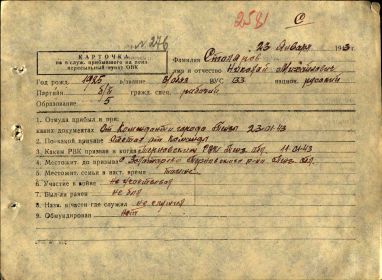 № 276
2581
С
КАРТОЧКА
на в/служ. прибывшего на
пересыльный пункт ОВК
23 Января 1943 г
Фамилия Столяров
имя и отчество Николай Михайлович
Год рожд. 1925 в/звание ВУС 133 национ. русский
Партийн б/п гражд. спец. рабочий
Образование 5
1. Откуда прибыл и при
каких документах От Коменданта города 23-01-43
2. По какой причине Отстал от команды
3. Каким РВК призван и когда РВК обл. 11-01-43
4. Местожит. до призыва обл.
5. Местожит. семьи в наст. время
6. Участие в войне не участвовал
7. Был-ли ранен не был
8. Назв. в/части где служил не служил
9. Обмундирован нет